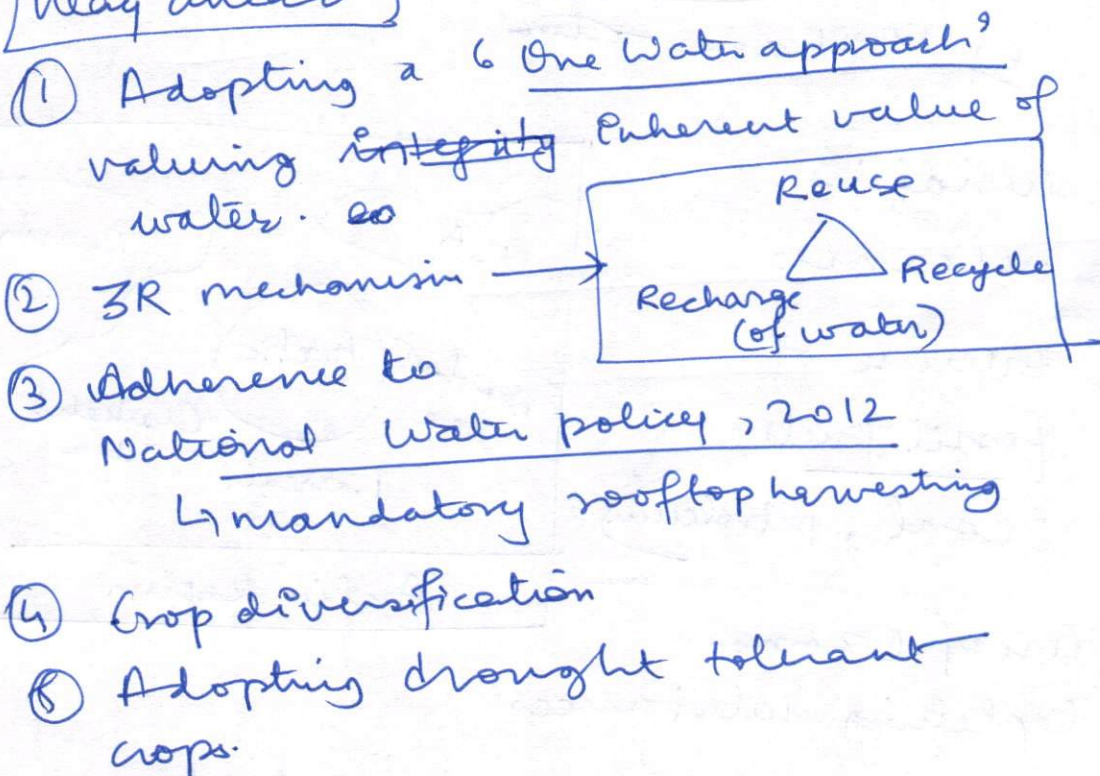 Way ahead
① Adopting a 'One Water approach'
valuing integrity inherent value of
water. so
② 3R mechanism →
Reuse
Recycle
Recharge
(of water)
③ Adherence to
National Water policy, 2012
↳ mandatory rooftop harvesting
④ Crop diversification
⑤ Adopting drought tolerant
crops.